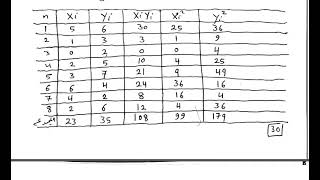 n Xi Yi XiYi Xi² Yi²
1 5 6 30 25 36
2 1 3 3 1 9
3 0 2 0 0 4
4 2 5 10 4 25
5 3 7 21 9 49
6 6 4 24 36 16
7 4 2 8 16 4
8 2 6 12 4 36
23 35 108 99 179
30